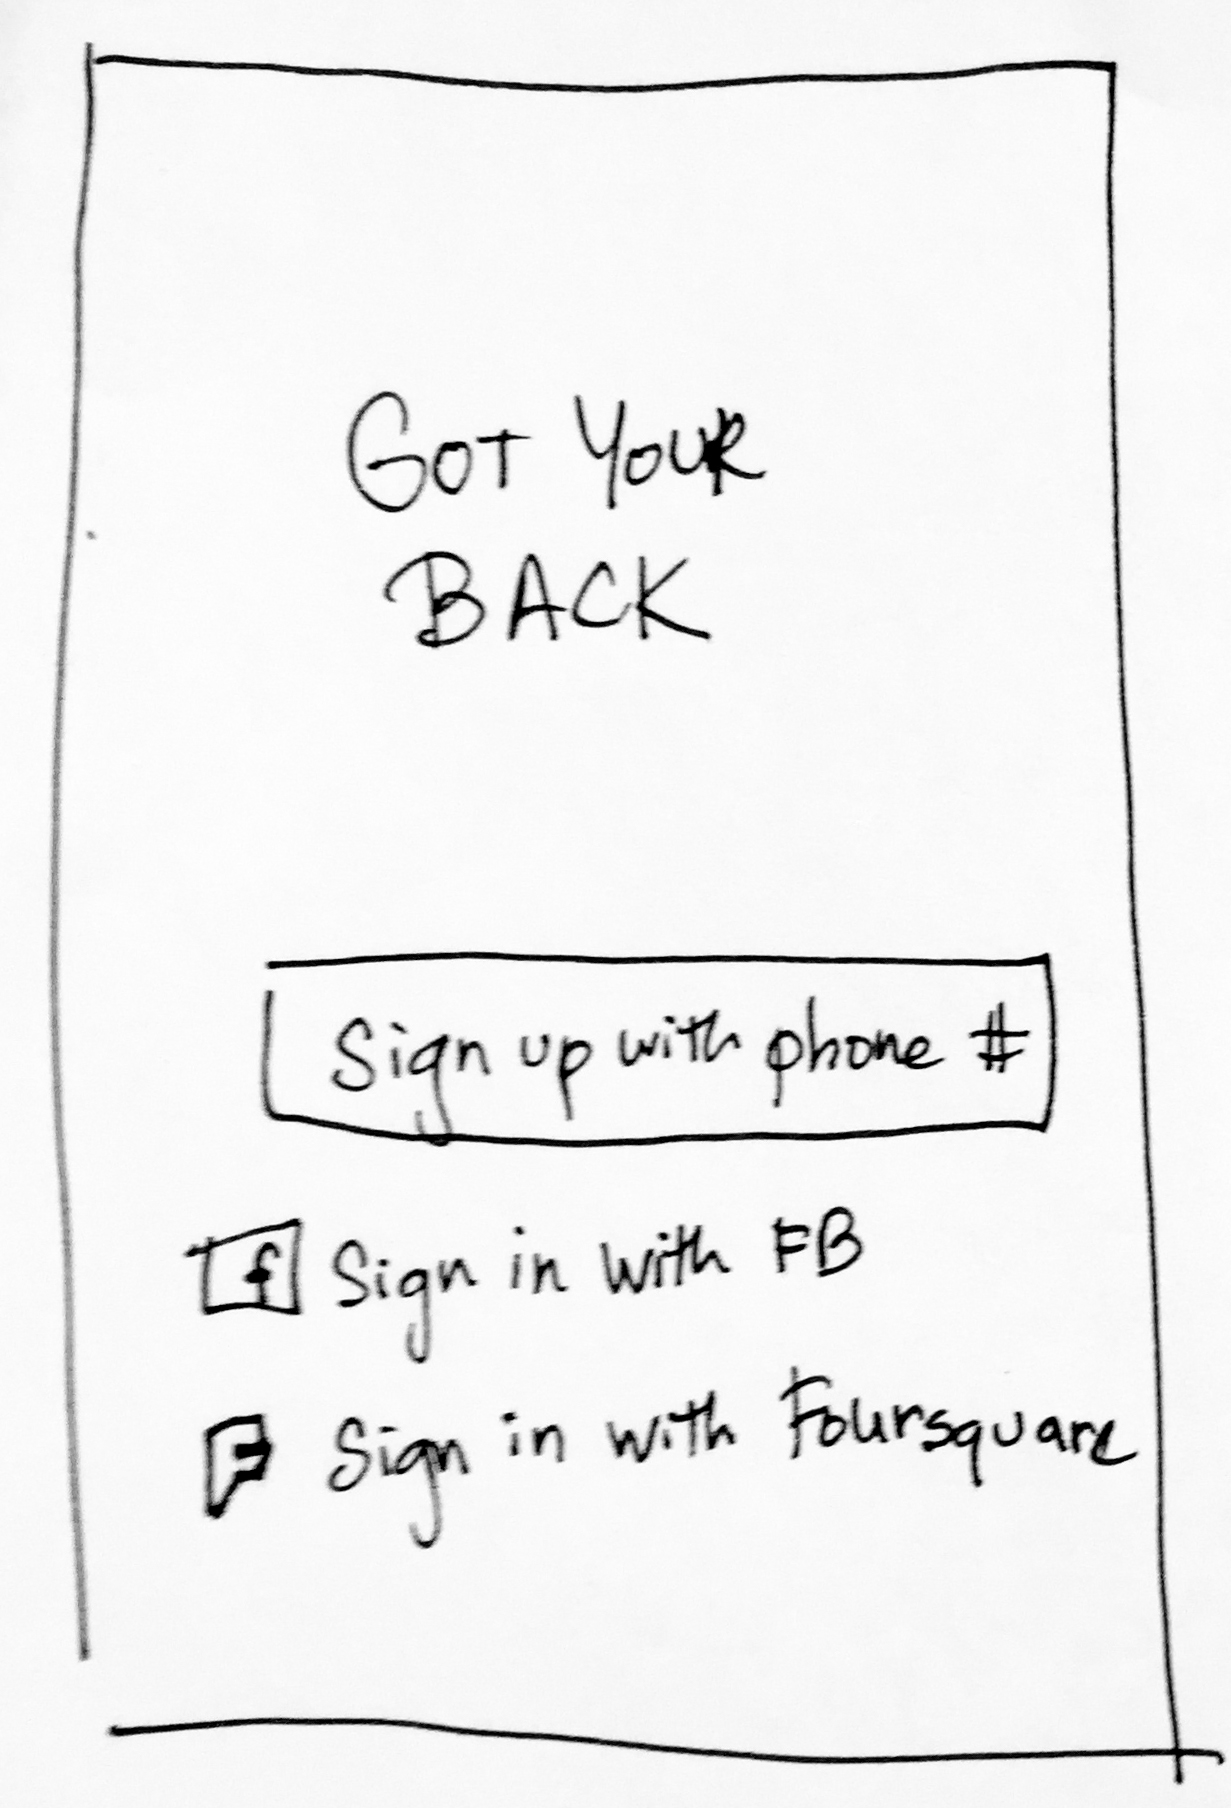 GOT YOUR
BACK
Sign up with phone #
f Sign in with FB
F Sign in with Foursquare